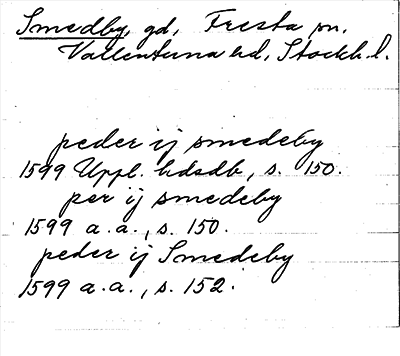 Smedby, gd, Fresta sn.
Vallentuna hd, Stockh. l.
peder ij smedeby
1599 Uppl. hdsdb, s. 150.
per ij smedeby
1599 a.a., s. 150.
peder ij Smedeby
1599 a.a., s. 152.